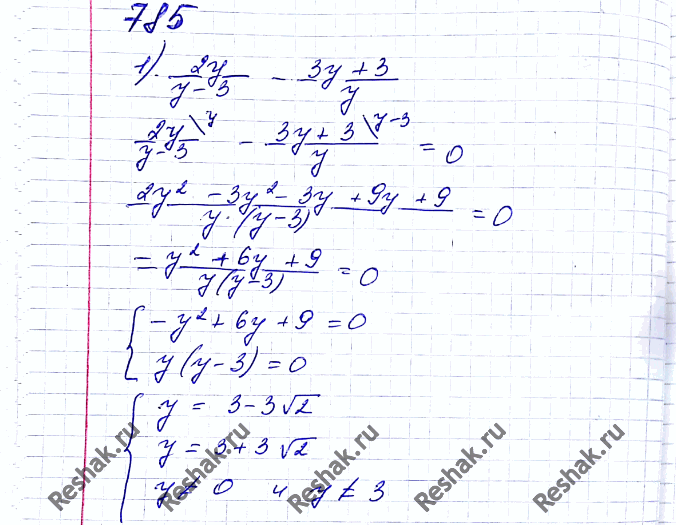 785
1) 2y/(y-3) - (3y+3)/y
2y/(y-3) \y - (3y+3)/y \y-3 = 0
(2y² - 3y² - 3y + 9y + 9)/(y·(y-3)) = 0
= (y² + 6y + 9)/(y(y-3)) = 0
{ -y² + 6y + 9 = 0
y(y-3) = 0
{ y = 3 - 3√2
y = 3 + 3√2
y ≠ 0 и y ≠ 3
Reshak.ru Reshak.ru Reshak.ru Reshak.ru Reshak.ru